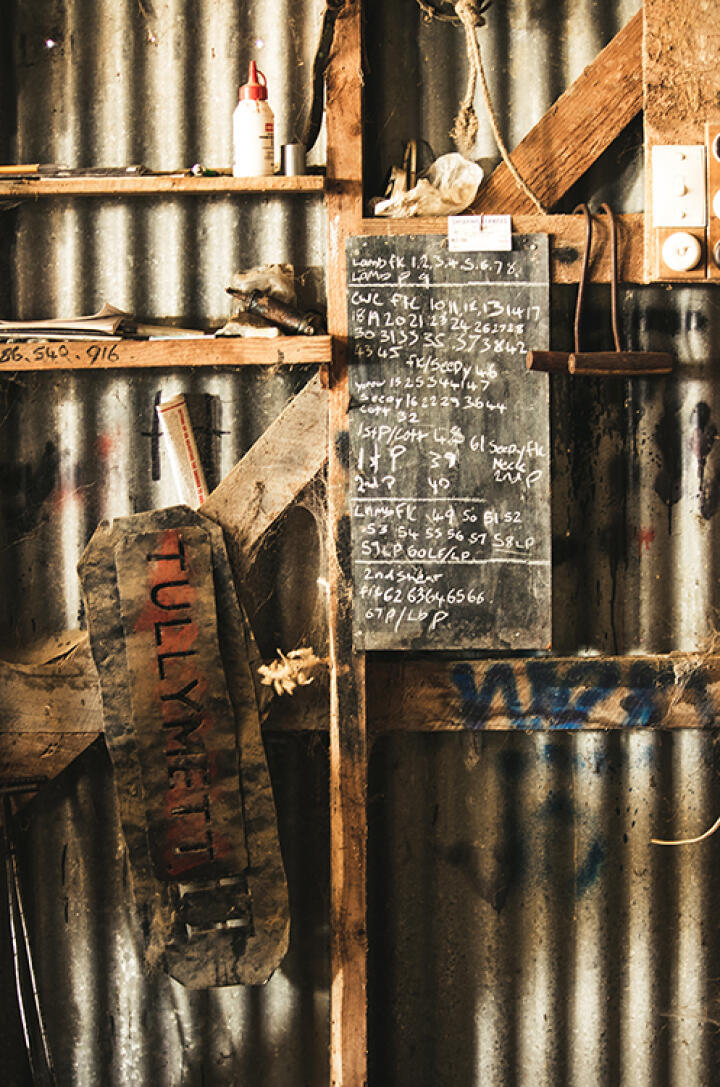 Lambfk 1,2,3,4,5,6,7,8,
Lamb P 9
CWC flk 10 11, 12, 13 14 17
18 19 20 21 23 24 26 27 28
30 31 33 35 37 38 42
43 45
fk/Seedy 46
15 25 34 41 47
Seedy 16 22 29 36 44
Cott 32
1stP/Cott
61 Seedy flk
1st P 39
Neck
2nd P
2nd P 40
Lambflk 49 50 51 52
53 54 55 56 57 58LP
59LP 60LF/LP
2nd Shear
62 63 64 65 66
67P/LbP
86.540.916
TULLYMETT